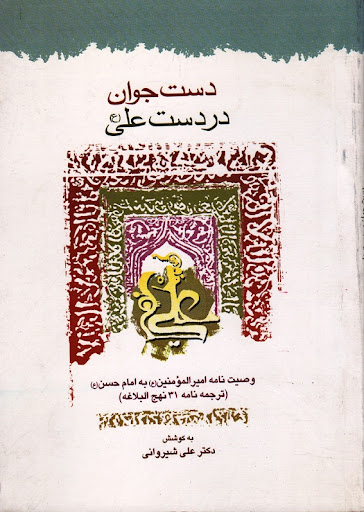 دست جوان
در دست علی(ع)
علی
وصیت نامه امیرالمؤمنین(ع) به امام حسن(ع)
(ترجمه نامه ۳۱ نهج البلاغه)
به کوشش
دکتر علی شیروانی